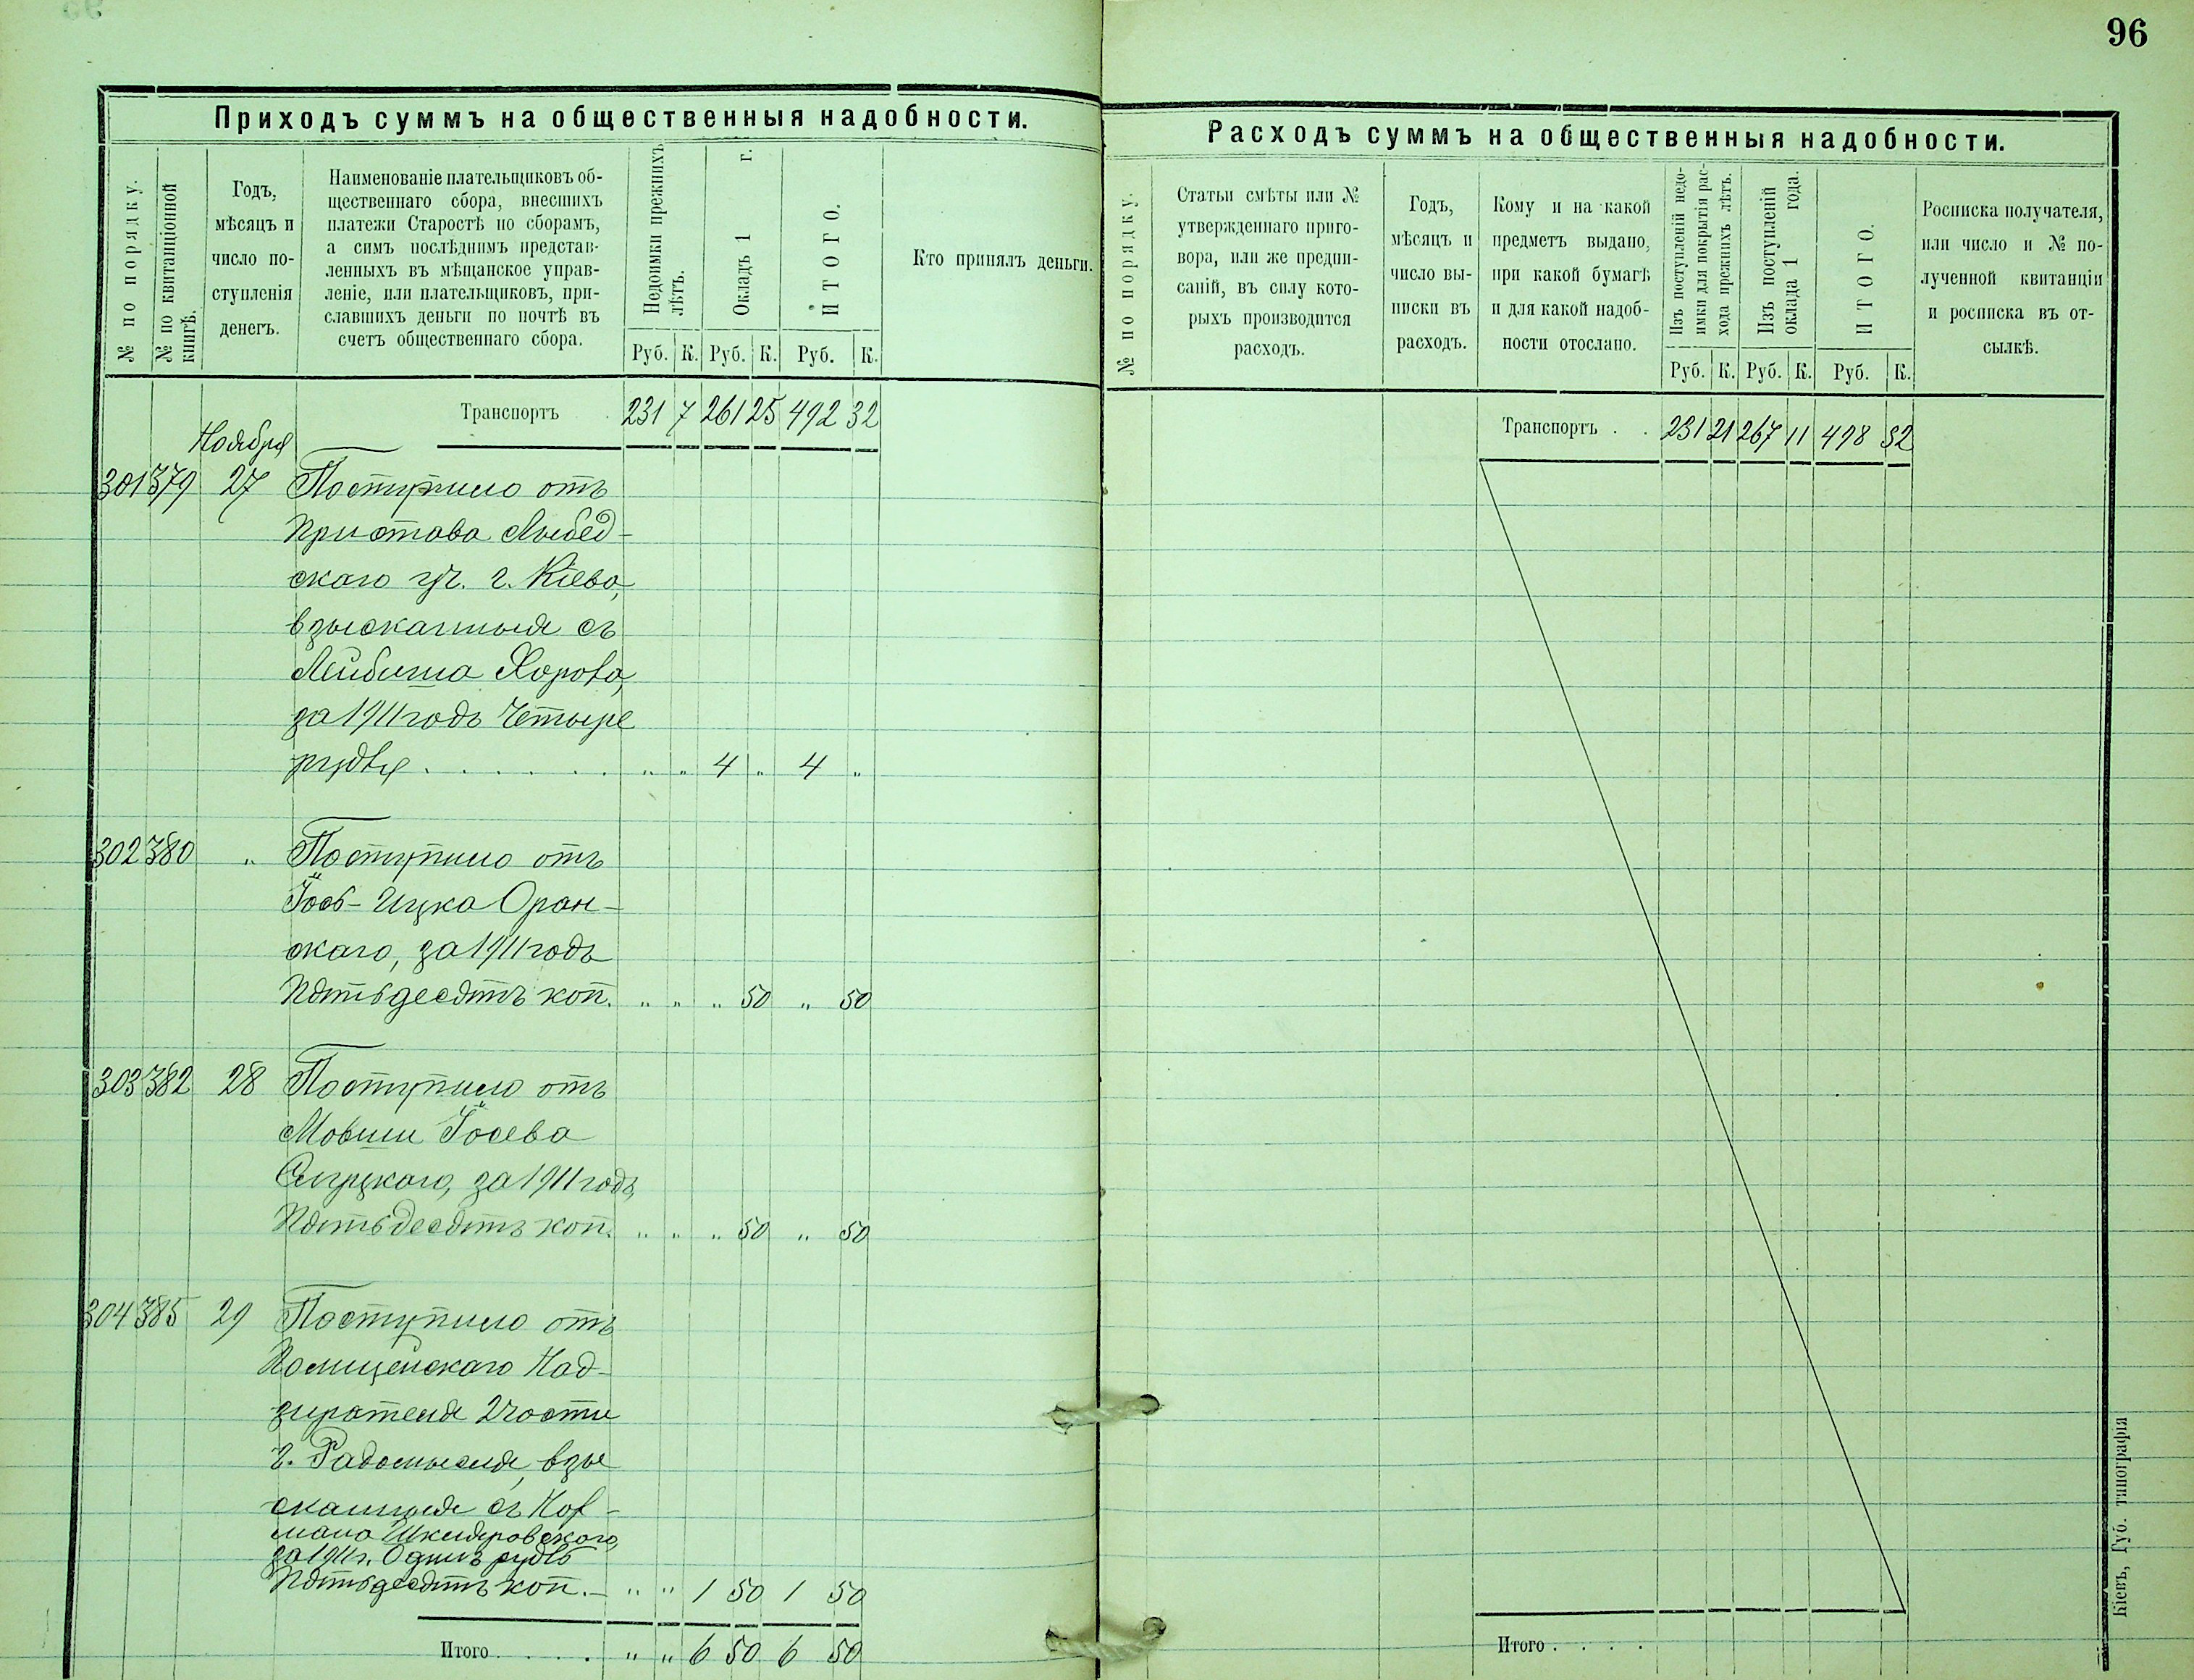 96
Приходъ суммъ на общественныя надобности.
№ по порядку.
№ по квитанціонной
книгѣ.
Годъ,
мѣсяцъ и
число по-
ступленія
денегъ.
Наименованіе плательщиковъ об-
щественнаго сбора, внесшихъ
платежи Старостѣ по сборамъ,
а симъ послѣднимъ представ-
ленныхъ въ мѣщанское управ-
леніе, или плательщиковъ, при-
славшихъ деньги по почтѣ въ
счетъ общественнаго сбора.
Недоимки прежнихъ
лѣтъ.
Окладъ 1 г.
ИТОГО.
Руб. К. Руб. К. Руб. К.
Кто принялъ деньги.
Транспортъ 231 7 261 25 492 32
Ноября
301 379 27 Поступило отъ
Пристава Лыбед-
скаго уч. г. Кіева,
взысканныя съ
Лейбиша Хорова,
за 1911 годъ Четыре
рубля . . . . . . . „ „ 4 „ 4 „
302 380 „ Поступило отъ
Іось-Ицка Оран-
скаго, за 1911 годъ
Пятьдесятъ коп. „ „ „ 50 „ 50
303 382 28 Поступило отъ
Мовши Іосева
Слуцкаго, за 1911 годъ,
Пятьдесятъ коп. „ „ „ 50 „ 50
304 385 29 Поступило отъ
Полицейскаго Над-
зирателя 2 части
г. Радомысля, взы
сканныя съ Ноф-
мана Шкляровскаго,
за 1911 г. Одинъ рубль
Пятьдесятъ коп. – „ „ 1 50 1 50
Итого . . . . „ „ 6 50 6 50
Расходъ суммъ на общественныя надобности.
№ по порядку.
Статьи смѣты или №
утвержденнаго приго-
вора, или же предпи-
саній, въ силу кото-
рыхъ производится
расходъ.
Годъ,
мѣсяцъ и
число вы-
писки въ
расходъ.
Кому и на какой
предметъ выдано,
при какой бумагѣ
и для какой надоб-
ности отослано.
Изъ поступленій недо-
имки для покрытія рас-
хода прежнихъ лѣтъ.
Изъ поступленій
оклада 1 года.
ИТОГО.
Руб. К. Руб. К. Руб. К.
Росписка получателя,
или число и № по-
лученной квитанціи
и росписка въ от-
сылкѣ.
Транспортъ . . 231 21 267 11 498 32
Итого . . . .
Кіевъ, Губ. типографія